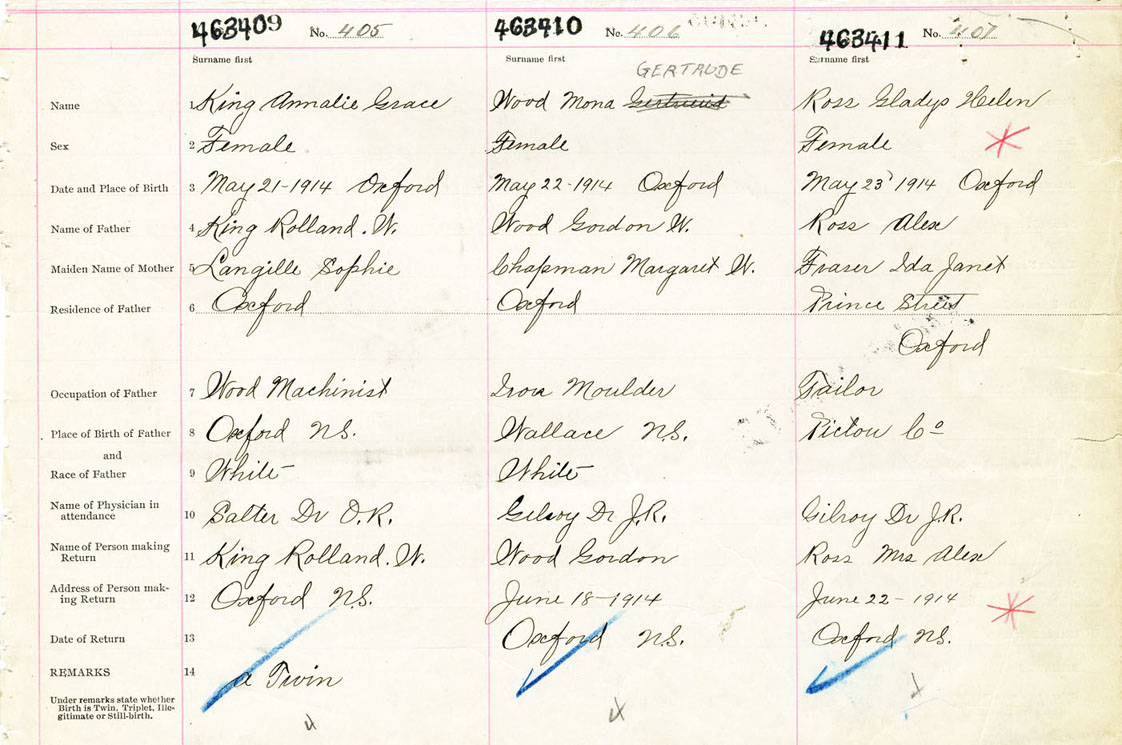 463409 No. 405 463410 No. 406 463411 No. 407
Surname first Surname first Surname first
GERTRUDE
Name 1 King Annalie Grace Wood Mona Ross Gladys Helen
Sex 2 Female Female Female
Date and Place of Birth 3 May 21-1914 Oxford May 22-1914 Oxford May 23 1914 Oxford
Name of Father 4 King Rolland. W. Wood Gordon W. Ross Alex
Maiden Name of Mother 5 Langille Sophie Chapman Margaret W. Fraser Ida Janet
Residence of Father 6 Oxford Oxford Prince Street
Oxford
Occupation of Father 7 Wood Machinist Iron Moulder Tailor
Place of Birth of Father 8 Oxford N.S. Wallace N.S. Pictou Co
and
Race of Father 9 White White
Name of Physician in
attendance 10 Salter Dr O.R. Gilroy Dr J.R. Gilroy Dr J.R.
Name of Person making
Return 11 King Rolland. W. Wood Gordon Ross Mrs Alex
Address of Person mak-
ing Return 12 Oxford N.S. June 18-1914 June 22-1914
Date of Return 13 Oxford N.S. Oxford N.S.
REMARKS 14 a Twin
Under remarks state whether
Birth is Twin, Triplet, Ille-
gitimate or Still-birth.